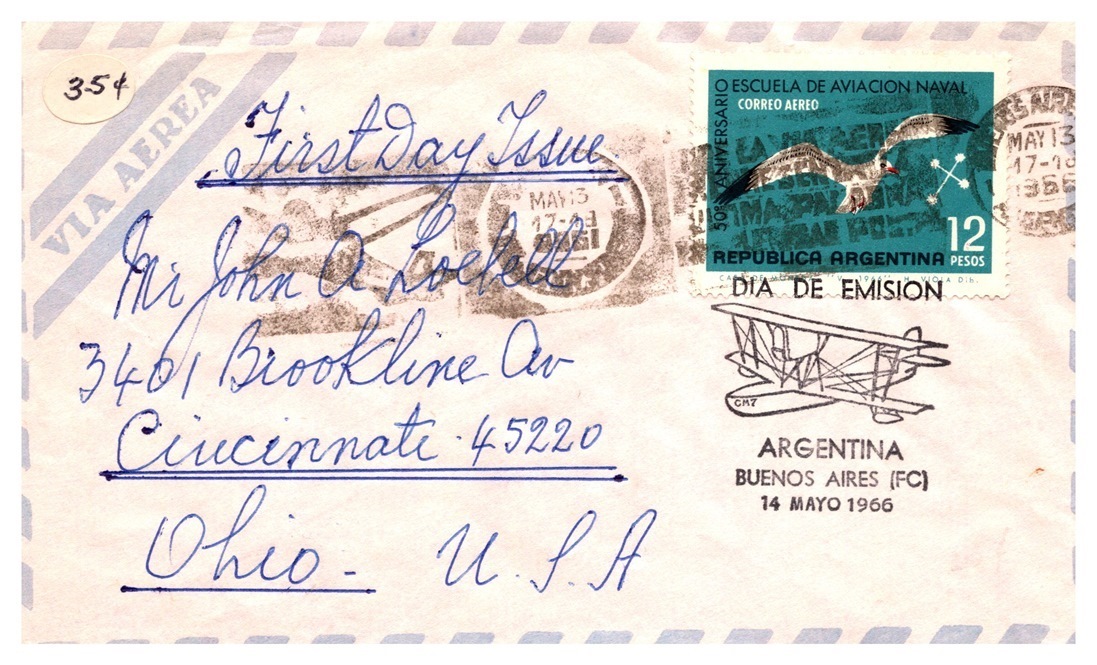 35¢
VIA AEREA
First Day Issue
Mr John A Loebell
3401 Brookline Av
Cincinnati 45220
Ohio - U.S.A
50º ANIVERSARIO ESCUELA DE AVIACION NAVAL
CORREO AEREO
12
PESOS
REPUBLICA ARGENTINA
MAY 13
MAY 13
DIA DE EMISION
CM7
ARGENTINA
BUENOS AIRES (FC)
14 MAYO 1966